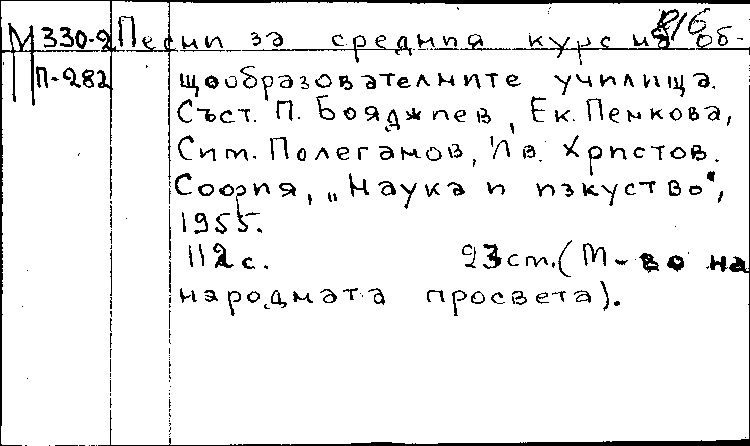 816
М 330-2 Песни за средния курс на об-
П-282 щообразователните училища.
Съст. П. Бояджиев, Ек. Пенкова,
Сим. Полеганов, Ив. Христов.
София, „Наука и изкуство",
1955.
112 с. 23 см. (М-во на
народната просвета).